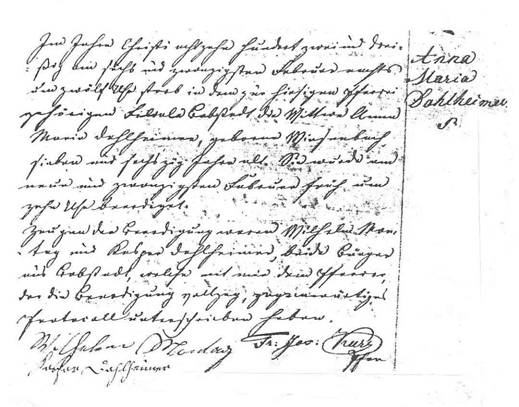 Im Jahre Christi achtzehn hundert zwei und drei-
ßig am sechs und zwanzigsten Februar nachts
um zwölf Uhr starb in dem zur hiesigen Pfarrei
gehörigen Filiale Bobstadt die Wittwe Anna
Maria Dahlheimer, geborne
sieben und sechszig Jahre alt. Sie wurde am
neun und zwanzigsten Februar früh um
zehn Uhr beerdiget.
Zeugen der Beerdigung waren Wilhelm Mon-
tag und Kaspar Dahlheimer, beide Bürger
aus Bobstadt, welche mit mir dem Pfarrer,
der die Beerdigung vollzog, gegenwärtiges
Protocoll unterschrieben haben.
Wilhelm Montag Fr: Jos: Kurz
Kaspar Dahlheimer Pfarr
Anna
Maria
Dahlheimer